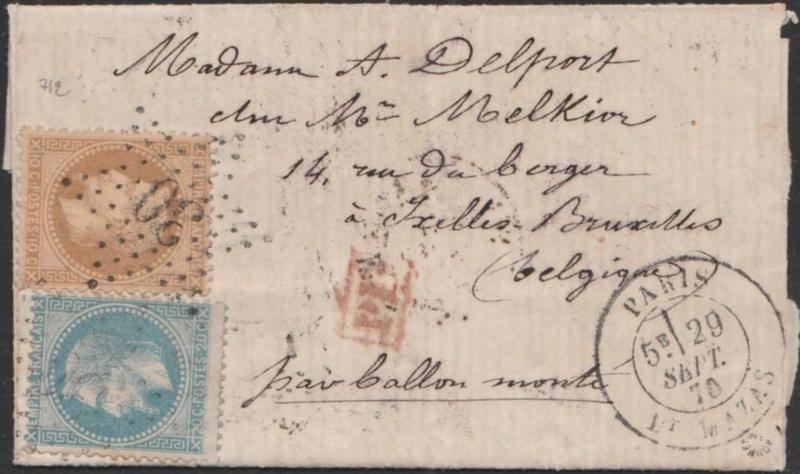 Madame A. Delport
chez Mr Melkior
14, rue du berger
à Ixelles-Bruxelles
(belgique)
par ballon monté
712
10 C·POSTES·10 C
20
EMPIRE FRANÇAIS
20 C·POSTES·20 C
PP
PARIS
5E 29
SEPT.
70
Bt MAZAS